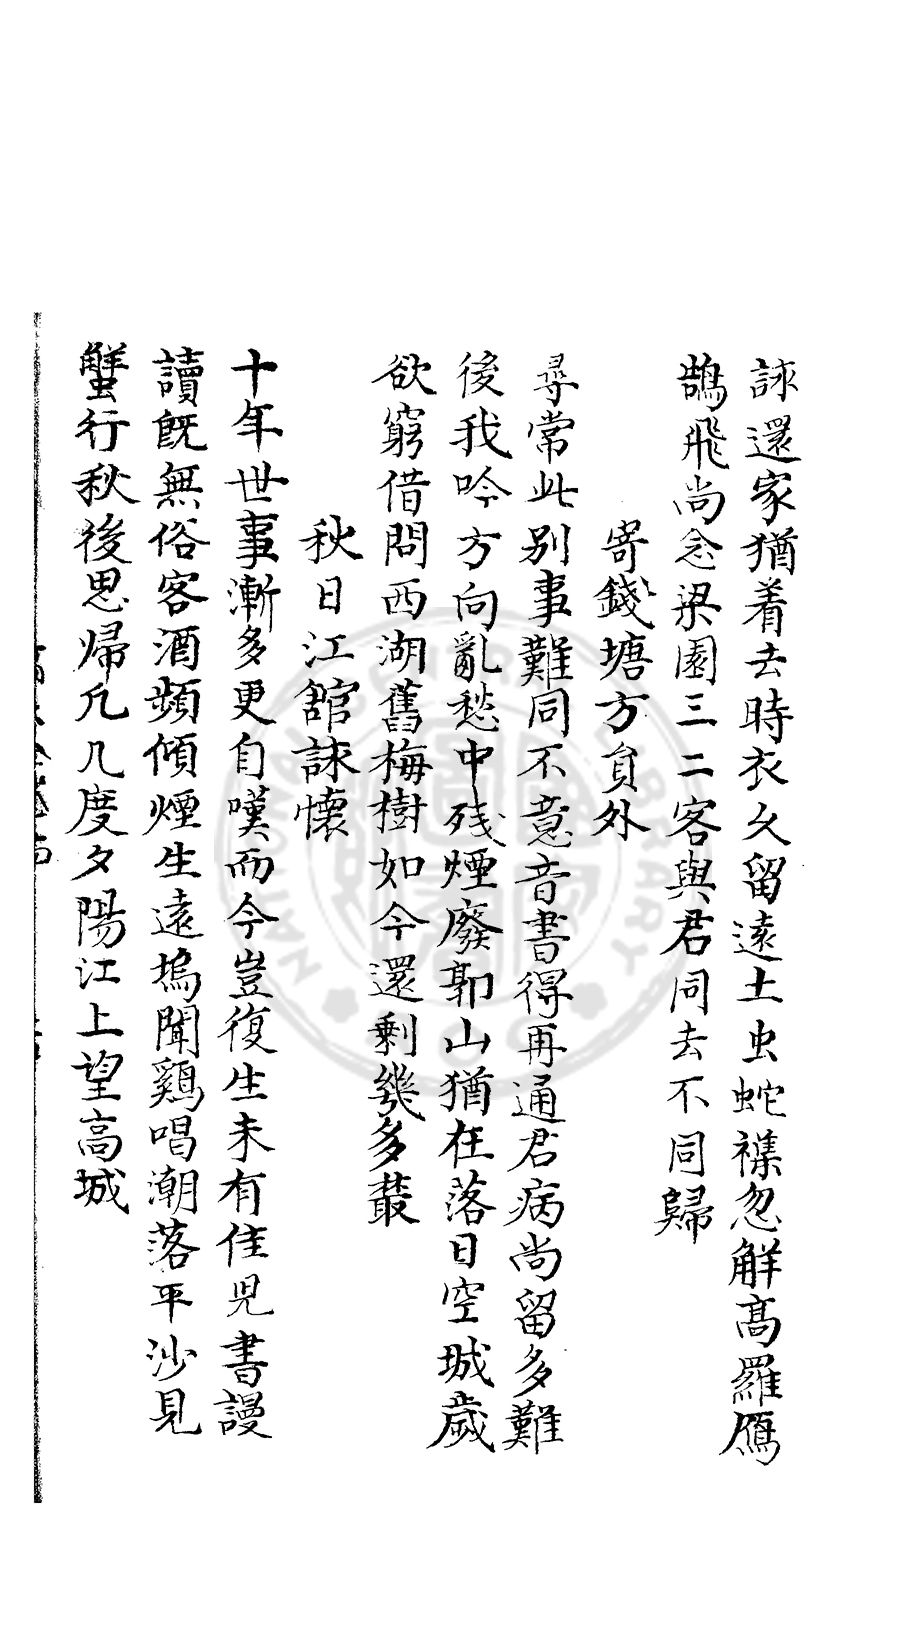 訹還家猶着去時衣久留遠土虫蛇襍忽觧髙羅鴈
鵲飛尚念梁園三二客與君同去不同歸
寄錢塘方貟外
尋常此別事難同不意音書得再通君病尚留多難
後我吟方向亂愁中残煙廢郭山猶在落日空城歲
欲窮借問西湖舊梅樹如今還剩幾多叢
秋日江館訹懷
十年世事漸多更自嘆而今豈復生未有佳児書謾
讀既無俗客酒頻傾煙生遠塢聞鷄唱潮落平沙見
蟹行秋後思帰凢几度夕陽江上望高城